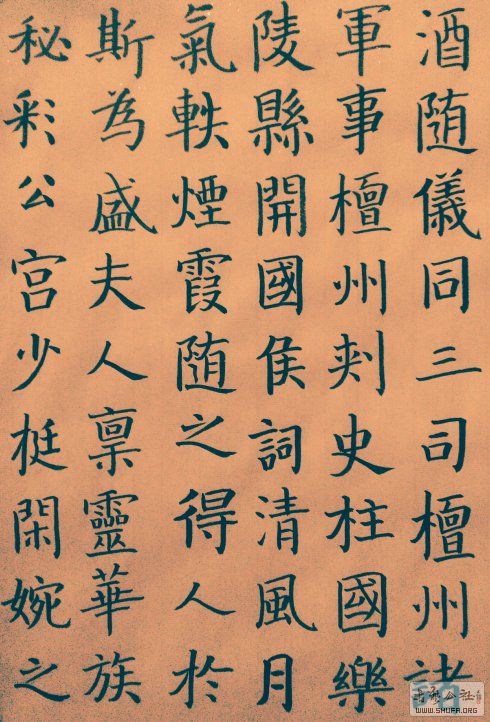 酒随儀同三司檀州諸
軍事檀州刾史柱國樂
陵縣開國侯詞清風月
氣軼煙霞随之得人於
斯為盛夫人稟靈華族
秘彩公宫少梃閑婉之
WWW.SHUFA.ORG